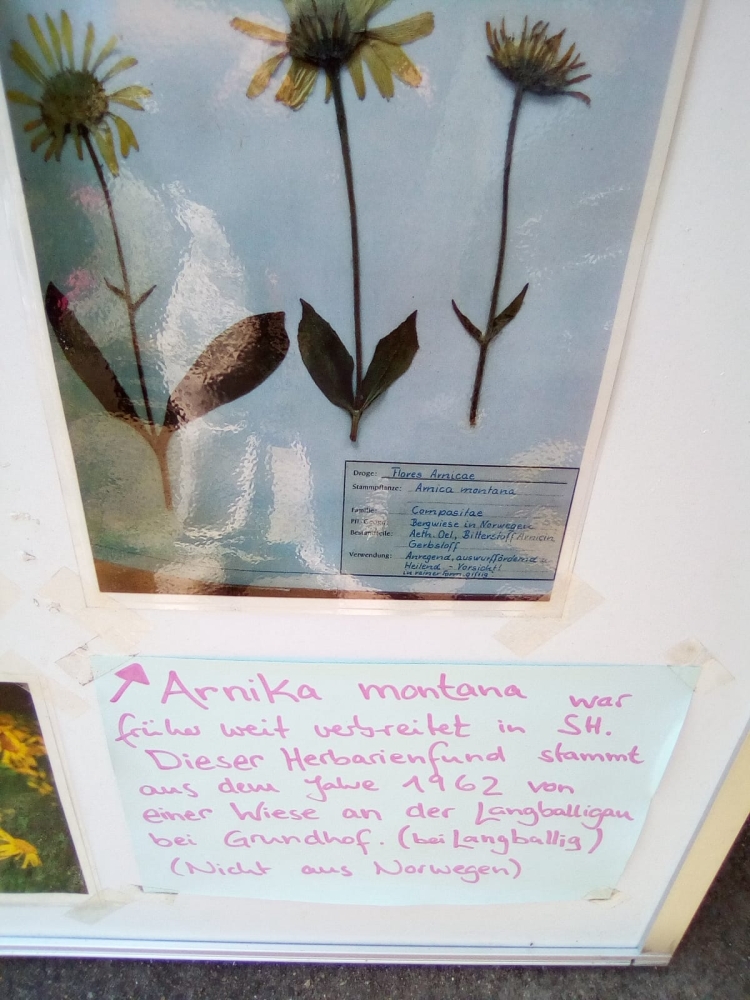 Droge: Flores Arnicae
Stammpflanze: Arnica montana
Familie: Compositae
Bergwiese in Norwegen
Aeth. Oel, Bitterstoff Arnicin
Gerbstoff
Verwendung: Anregend, auswurffördernd u.
Heilend, - Vorsicht!
in reiner Form giftig
Arnika montana war
früher weit verbreitet in SH.
Dieser Herbarienfund stammt
aus dem Jahre 1962 von
einer Wiese an der Langballigau
bei Grundhof. (bei Langballig)
(Nicht aus Norwegen)